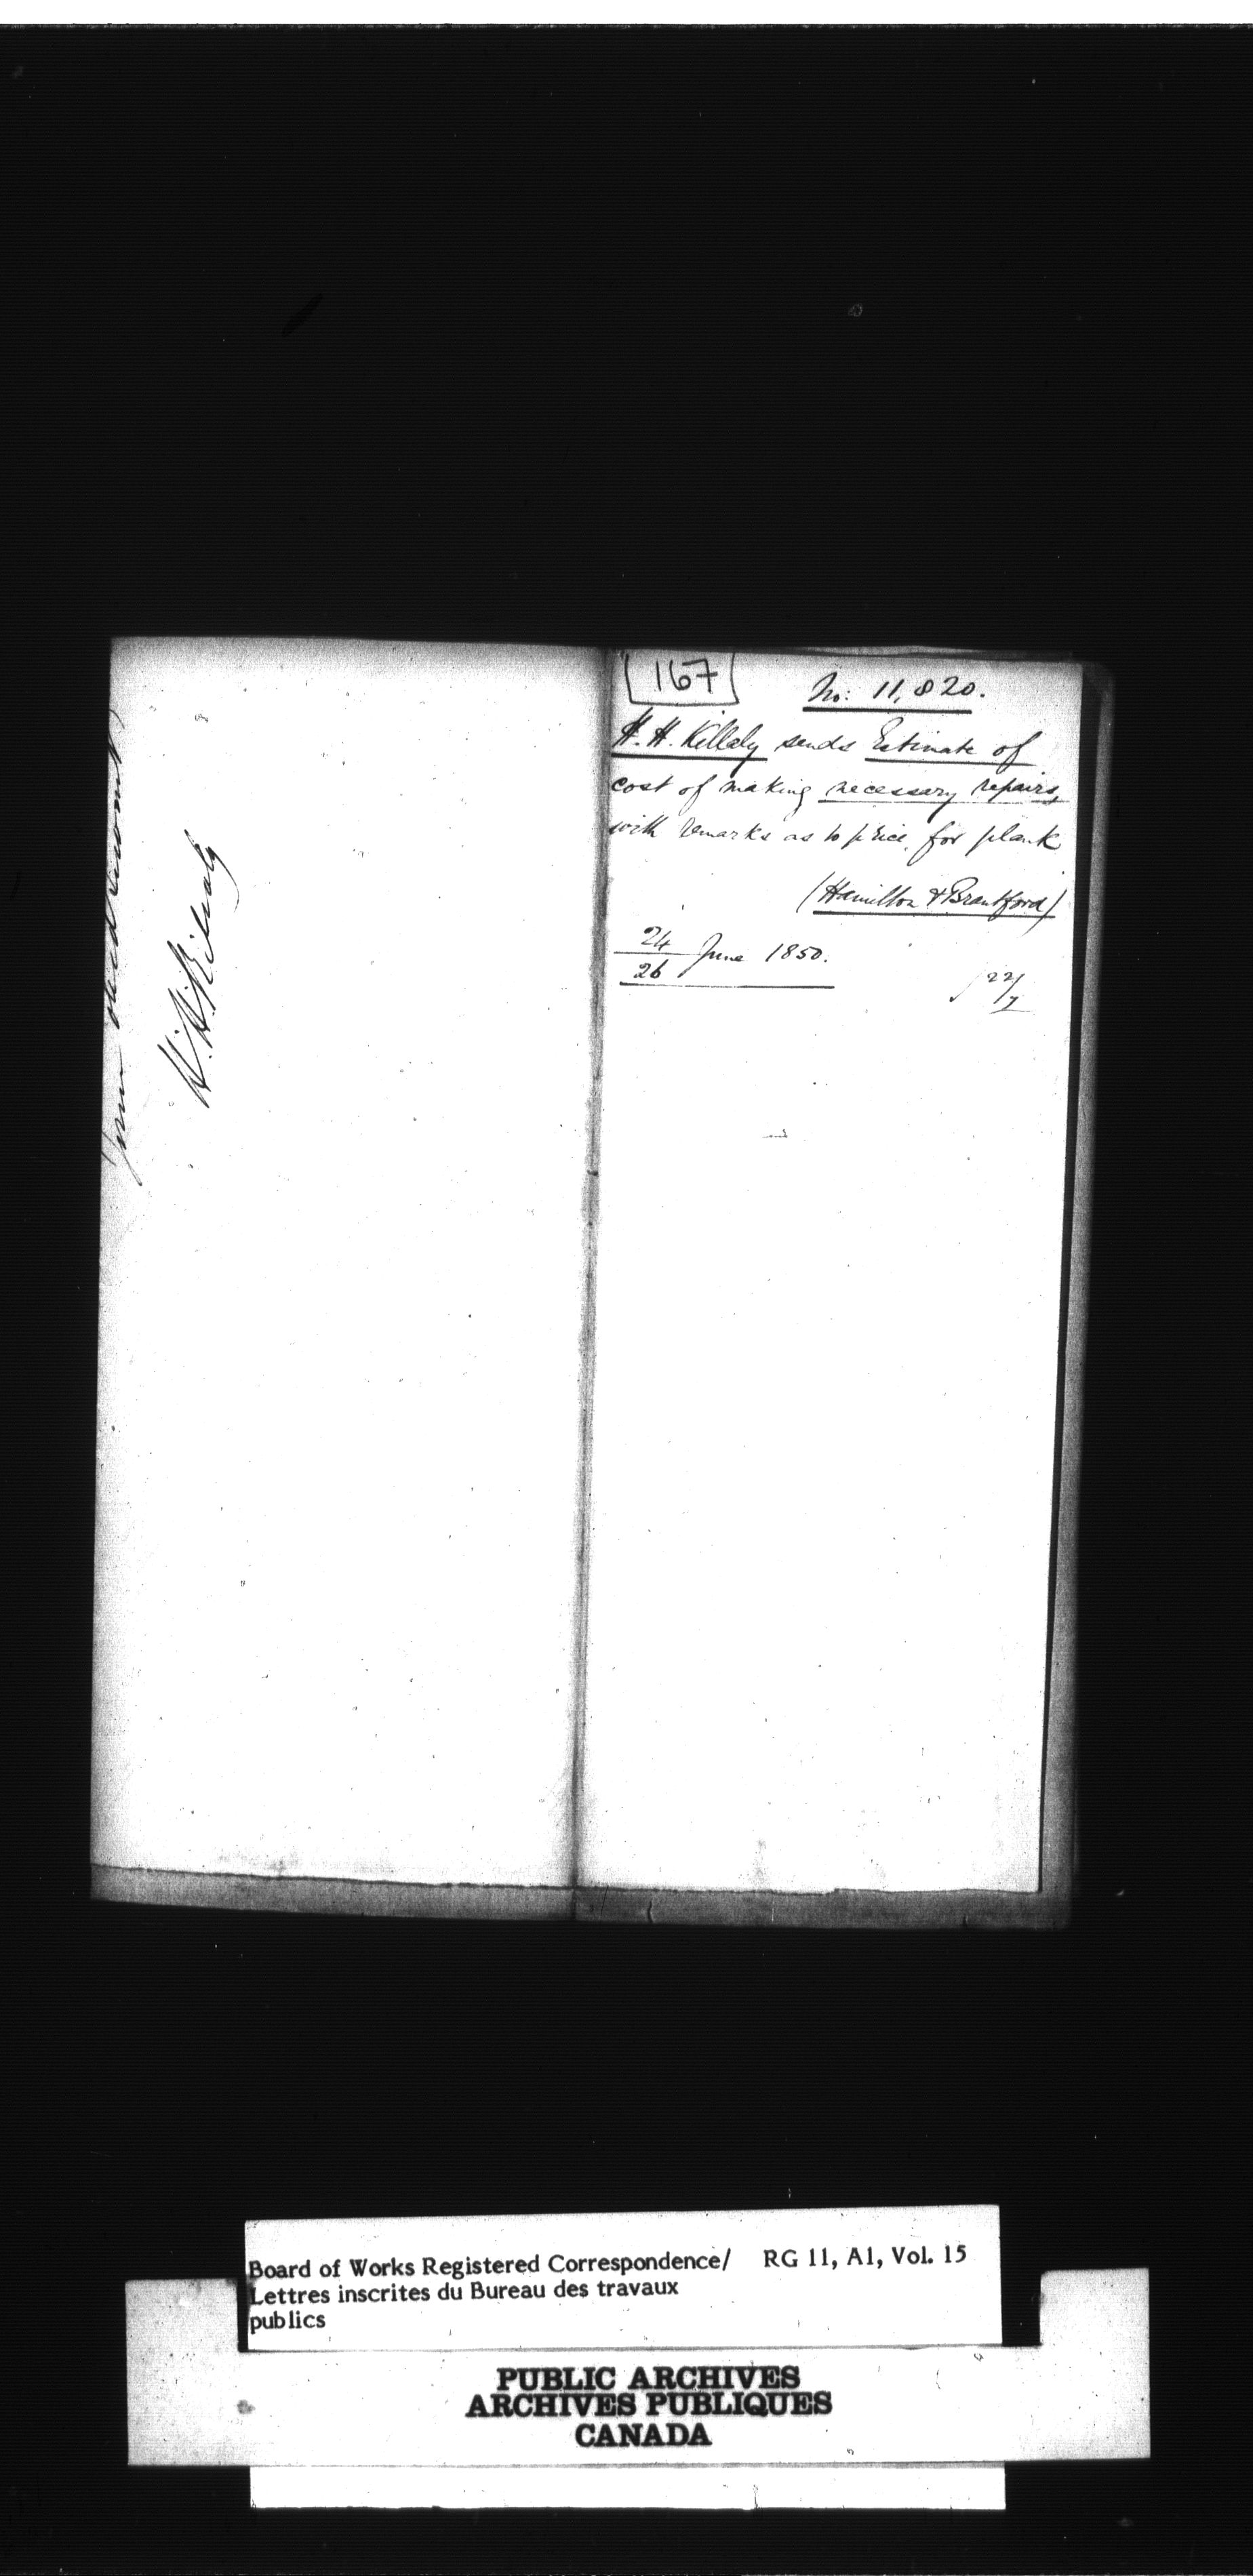 H.H. Killaly
167
No: 11,820.
H. H. Killaly sends Estimate of
cost of making necessary repairs,
with remarks as to price for plank
(Hamilton & Brantford)
24
26 June 1850.
22/7
Board of Works Registered Correspondence/ RG 11, A1, Vol. 15
Lettres inscrites du Bureau des travaux
publics
PUBLIC ARCHIVES
ARCHIVES PUBLIQUES
CANADA